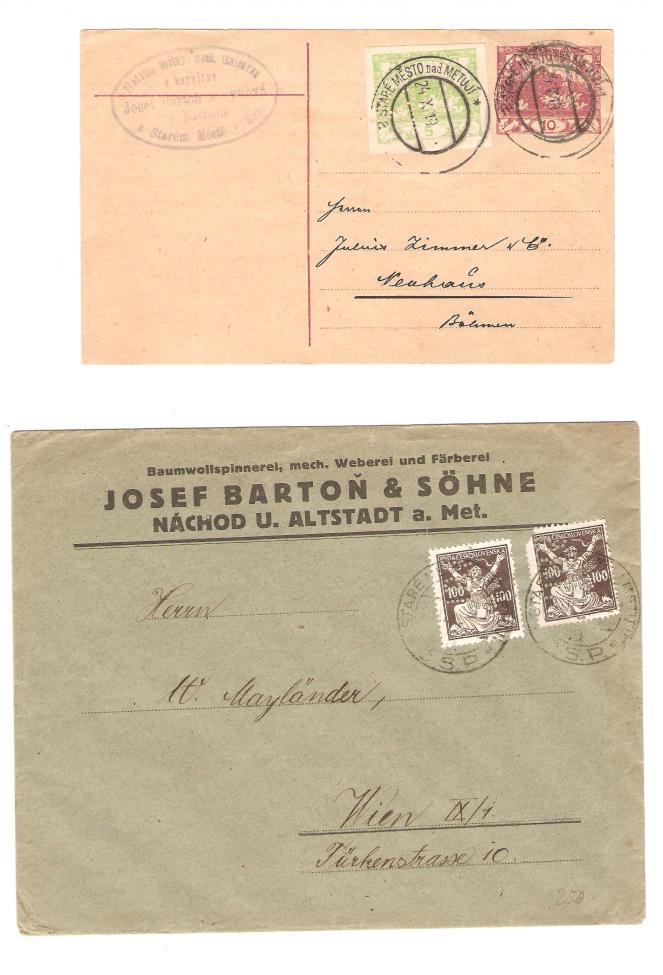 mech.
a barvírna
Josef Bartoň a synové
v Náchodě
a Starém Městě n. Met.
5
* STARÉ MĚSTO nad METUJÍ *
24. X. 19
10
Herrn
Julius Zimmer & Co.
Neuhaus
Böhmen
Baumwollspinnerei, mech. Weberei und Färberei
JOSEF BARTOŇ & SÖHNE
NÁCHOD U. ALTSTADT a. Met.
POŠTA ČESKOSLOVENSKÁ
100 100
POŠTA ČESKOSLOVENSKÁ
100 100
STARÉ
Č.S.P.
STARÉ
Č.S.P.
Herrn
W. Mayländer,
Wien IX/1
Türkenstrasse 10.
250